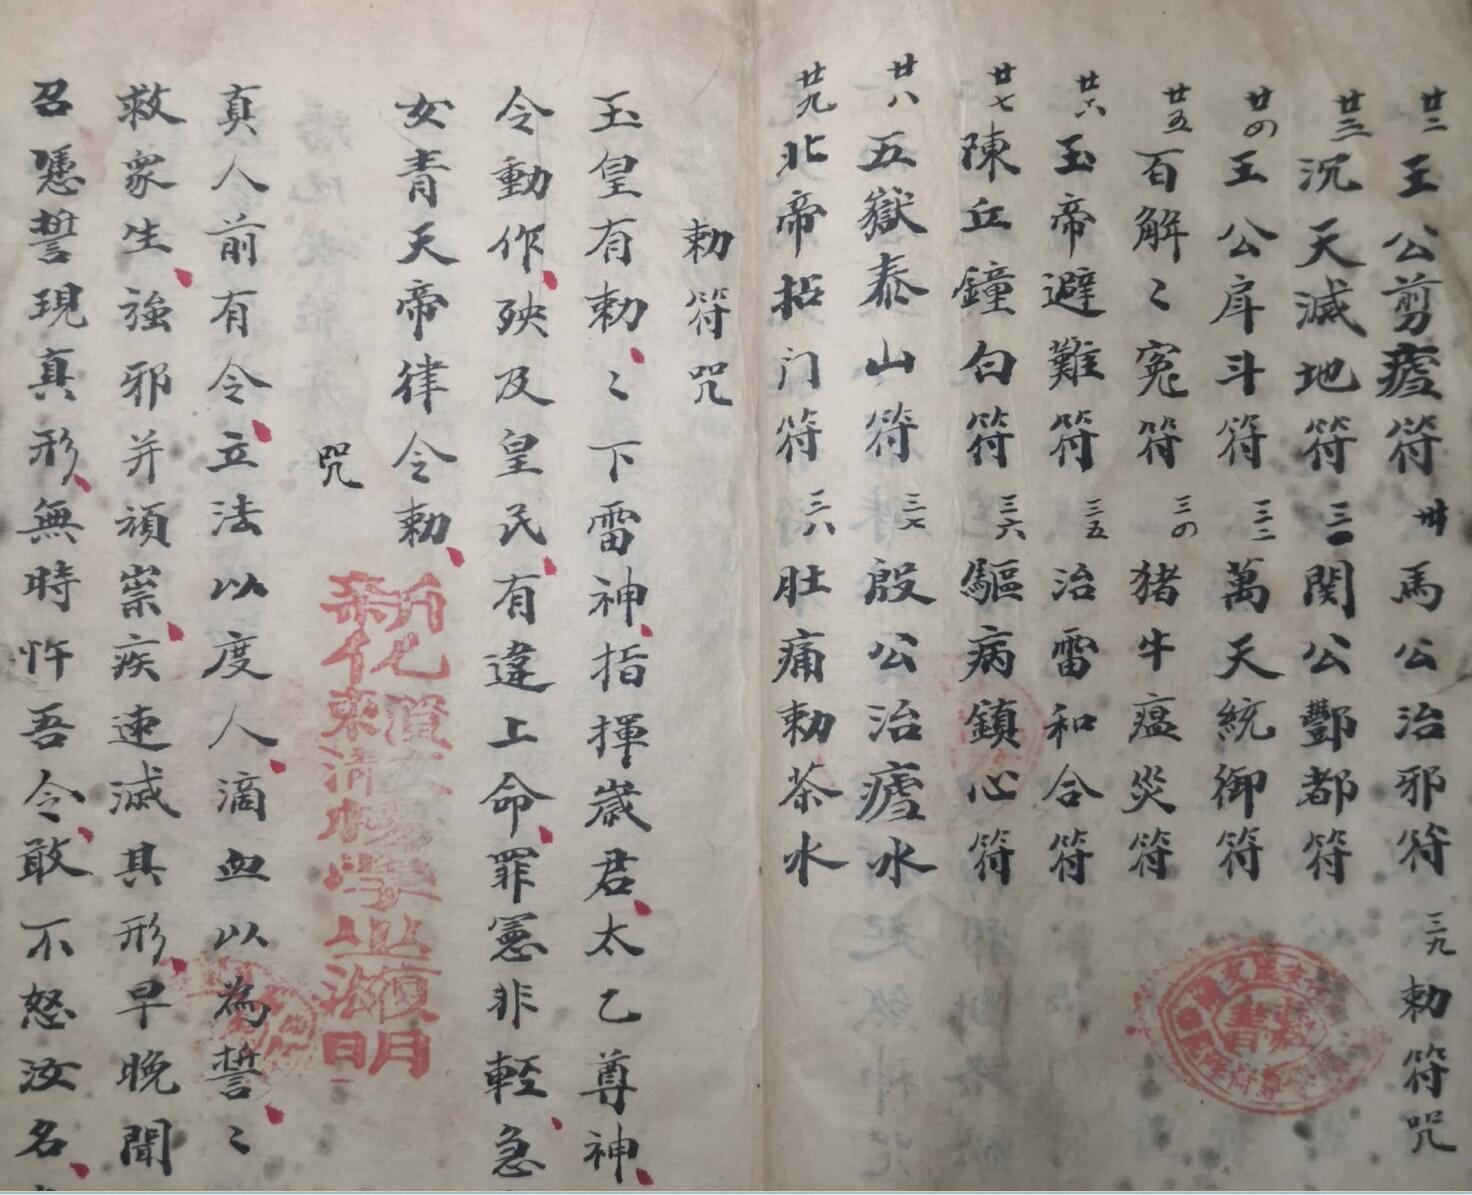 廿二 王公剪瘧符 卅 馬公治邪符 三九 勅符咒
廿三 沉天滅地符 三一 関公酆都符
廿四 王公戽斗符 三二 萬天統御符
廿五 百解〻冤符 三四 猪牛瘟災符
廿六 玉帝避難符 三五 治雷和合符
廿七 陳丘鐘白符 三六 驅病鎮心符
廿八 五嶽泰山符 三七 殷公治瘧水
廿九 北帝拓门符 三八 肚痛勅茶水
勅符咒
玉皇有勅〻下雷神指揮嵗君太乙尊神
令動作殃及皇民有違上命罪憲非輕急
女青天帝律令勅
咒
真人前有令立法以度人滴血以為誓〻
救衆生強邪并頑祟疾速滅其形早晚聞
召憑誓現真形無時忤吾令敢不怒汝名